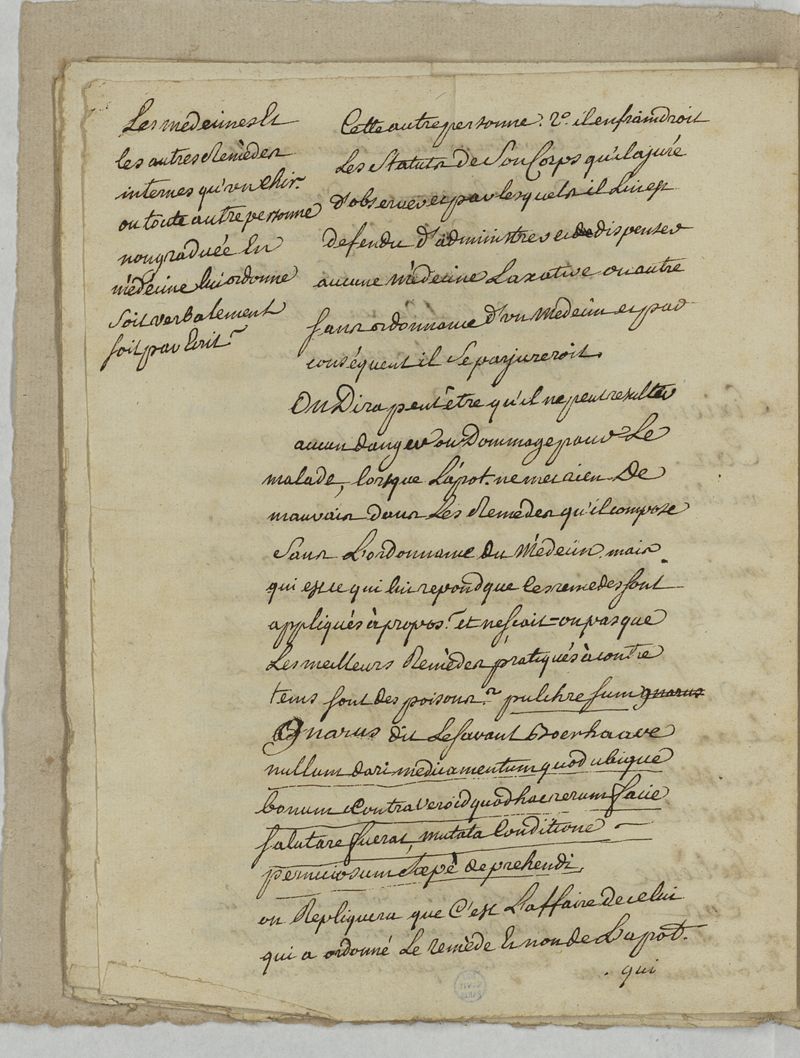 Les medecines Et
les autres Remèdes
internes qu'un Chir.n
ou toute autre personne
non graduée En
médecine lui ordonne
Soit verbalement
soit par Ecrit
Cette autre personne. 2°. il enfraindroit
Les Statuts de Son Corps qu'il a juré
d'observer et par lesquels il Lui est
defendu d'administrer et de dispenser
aucune médecine Laxative ou autre
sans ordonnance d'un Medecin et par
conséquent il Se parjureroit.
On Dira peut être qu'il ne peut resulter
aucun danger ou Dommage pour Le
malade, lorsque L'apot. ne met rien De
mauvais dans Les Remedes qu'il compose
Sans L'ordonnance du Médecin. mais
qui est ce qui lui repond que ces remedes sont
appliqués à propos? et ne scait-on pas que
Les meilleurs Remèdes pratiqués à contre
tems sont des poisons? pulchre sum gnarus
Gnarus dit Le Savant Boerhaave
nullum dari medicamentum quod ubique
bonum contra vero id quod hac rerum facie
salutare fuerat, mutata Conditione
perniciosum Saepè deprehendi.
on Repliquera que C'est L'affaire de celui
qui a ordonné Le remède Et non de L'apot.
qui